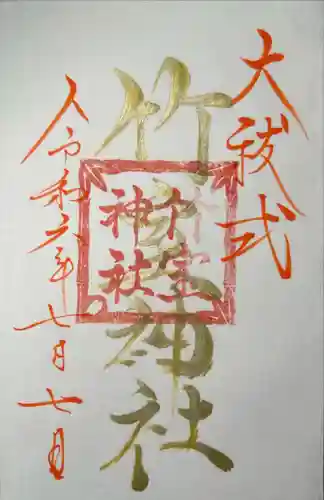 大祓式
竹室神社
竹室神社
令和六年七月七日